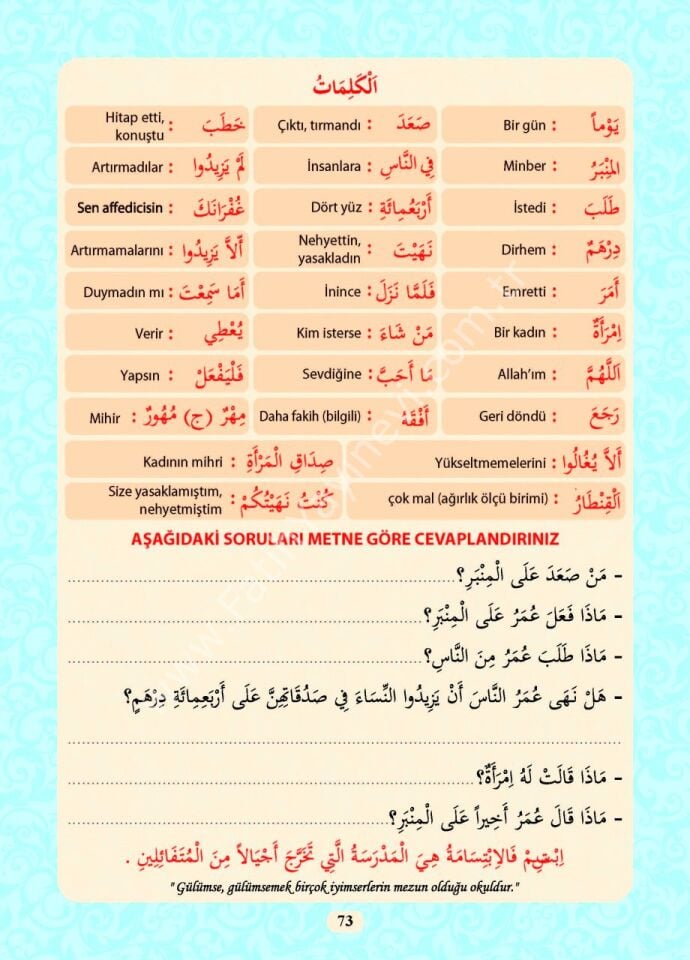 اَلْكَلِمَاتُ
يَوْماً : Bir gün
صَعَدَ : Çıktı, tırmandı
خَطَبَ : Hitap etti, konuştu
المِنْبَرُ : Minber
فِي النَّاسِ : İnsanlara
لَمْ يَزِيدُوا : Artırmadılar
طَلَبَ : İstedi
أَرْبَعُمِائَةِ : Dört yüz
غُفْرَانَكَ : Sen affedicisin
دِرْهَمٌ : Dirhem
نَهَيْتَ : Nehyettin, yasakladın
أَلَّا يَزِيدُوا : Artırmamalarını
أَمَرَ : Emretti
فَلَمَّا نَزَلَ : İnince
أَمَا سَمِعْتَ : Duymadın mı
اِمْرَأَةٌ : Bir kadın
مَنْ شَاءَ : Kim isterse
يُعْطِي : Verir
اَللَّهُمَّ : Allah'ım
مَا أَحَبَّ : Sevdiğine
فَلْيَفْعَلْ : Yapsın
رَجَعَ : Geri döndü
أَفْقَهُ : Daha fakih (bilgili)
مِهْرٌ (ج) مُهُورٌ : Mihir
أَلَّا يُغَالُوا : Yükseltmemelerini
صِدَاقِ الْمَرْأَةِ : Kadının mihri
اَلْقِنْطَارُ : çok mal (ağırlık ölçü birimi)
كُنْتُ نَهَيْتُكُمْ : Size yasaklamıştım, nehyetmiştim
AŞAĞIDAKİ SORULARI METNE GÖRE CEVAPLANDIRINIZ
- مَنْ صَعَدَ عَلَى الْمِنْبَرِ؟
- مَاذَا فَعَلَ عُمَرُ عَلَى الْمِنْبَرِ؟
- مَاذَا طَلَبَ عُمَرُ مِنَ النَّاسِ؟
- هَلْ نَهَى عُمَرُ النَّاسَ أَنْ يَزِيدُوا النِّسَاءَ فِي صَدُقَاتِهِنَّ عَلَى أَرْبَعِمِائَةِ دِرْهَمٍ؟
- مَاذَا قَالَتْ لَهُ اِمْرَأَةٌ؟
- مَاذَا قَالَ عُمَرُ أَخِيراً عَلَى الْمِنْبَرِ؟
اِبْتَسِمْ فَالاِبْتِسَامَةُ هِيَ الْمَدْرَسَةُ الَّتِي تَخَرَّجَ أَجْيَالاً مِنَ الْمُتَفَائِلِينِ .
" Gülümse, gülümsemek birçok iyimserlerin mezun olduğu okuldur."
73